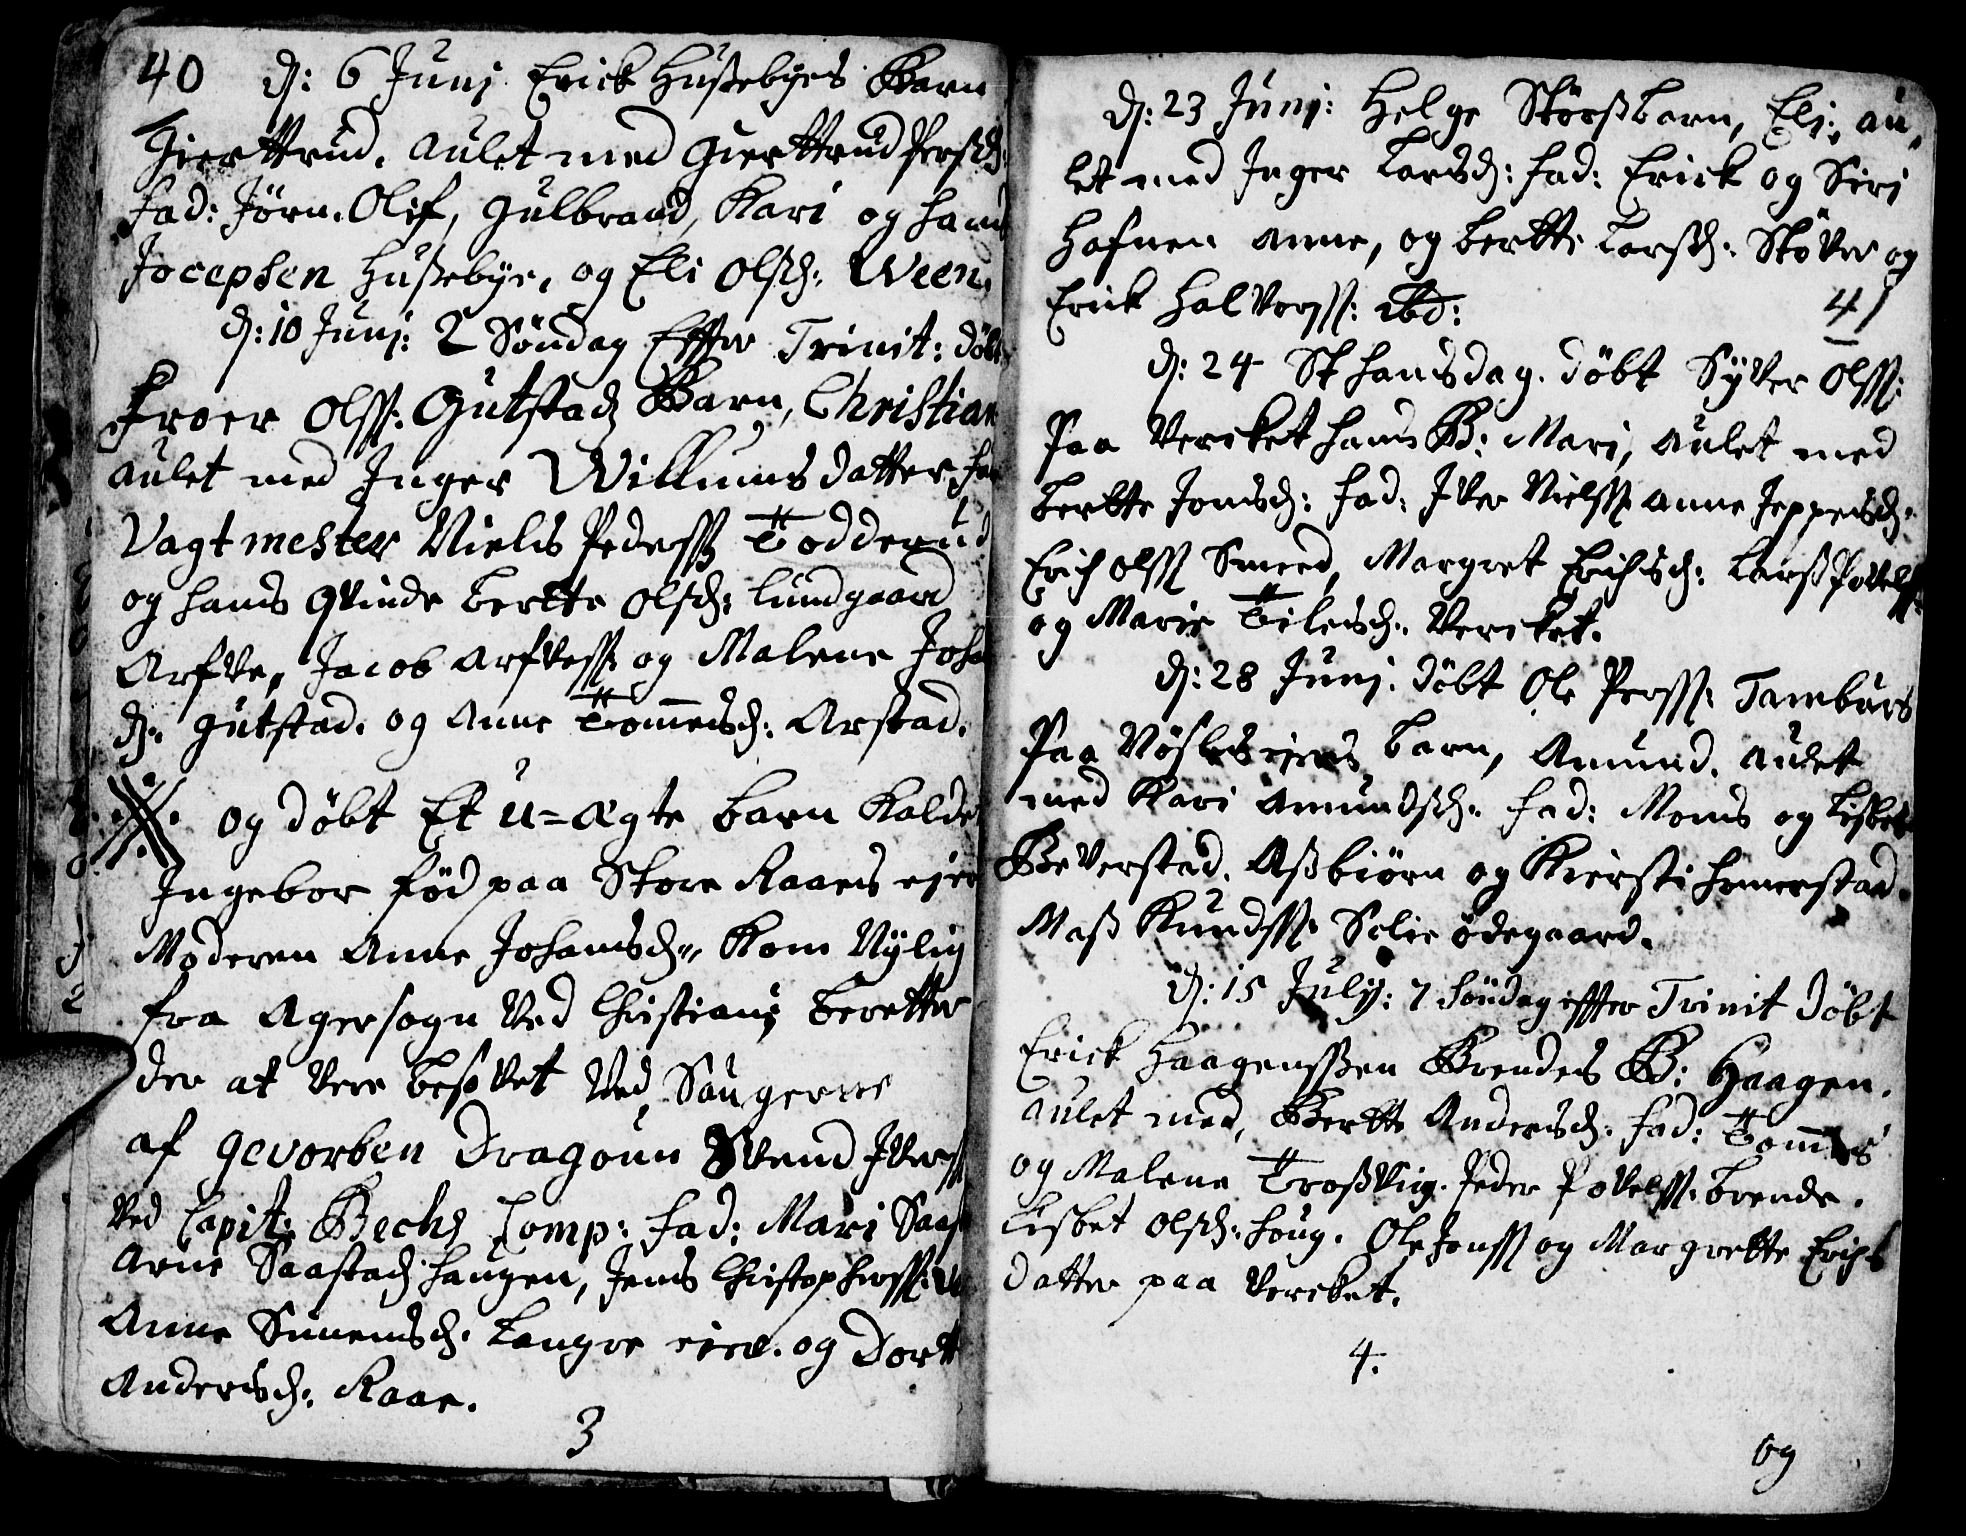 40 dj: 6 Junj Erick Hussebyes Barn
Gierttrud. aulet med Gierttrud Persd:
fad: Jörn. Olif, Gulbrand, Kari og Hans
Jocepsen Hussebye, og Eli Olsd: Ween.
dj: 10 Junj: 2 Söndag Effter Trinit: döbt
Froer Olss: Gutstad Barn, Christian
aulet med Inger Willumsdatter, fad
Vagtmester Niels Pederss Todderud
og hans Qvinde Bertte Olsd: Lundgaard
Arfve, Jacob Arfvess og Malene Joha
d: Gutstad. og Anne Tommesd: Arstad.
og döbt Et u=ægte barn Kaldet
Ingebor föd paa Store Raaes eje
Moderen Anne Johansd: Kom Nylig
fra Agersogn Ved Christian: beretter
der at vere besovet Ved Saugerne
af gevorben Dragoun Svend Iverss
Ved Capit: Bechs Comp: fad: Mari Saast
Arne Saastad haugen, Jens Christophersss:
Anne Simensd: Langre eje. og Dort
Andersd: Raae.
3
dj: 23 Junj: Helge Störssbarn, Eli; au,
let med Inger Larsd: fad: Erick og Siri
Hafnen Anne, og Bertte Larsd: Stöver og
Erick Halvorss: ibd:
41
dj: 24 St Hansdag. döbt Syver Olss:
Paa Vercket hans B: Mari, aulet med
Bertte Jonsd: fad: Iver Nielss Anne Jeppesd:
Erich Olss Smed, Margret Erichsd: Larss Povelss:
og Marie Tilesd: Vercket.
dj: 28 Junj. döbt Ole Perss: Tamburs
Paa Nösles ejes barn, Amund. aulet
med Kari Amundsd: fad: Mons og Lisbet
Beverstad. Assbiörn og Kiersti Hemerstad.
Mass Knudss: Solie ödegaard.
dj: 15 July: 7 Söndag effter Trinit döbt
Erick Haagenssen Brendes B: Haagen.
aulet med, Bertte Andersd: fad: Tommes
og Malene Trossvig. Peder Povelss: Brende.
Lisbet Olsd: Houg. Ole Jonss og Margrette Erichs
datter paa Vercket.
4.
og